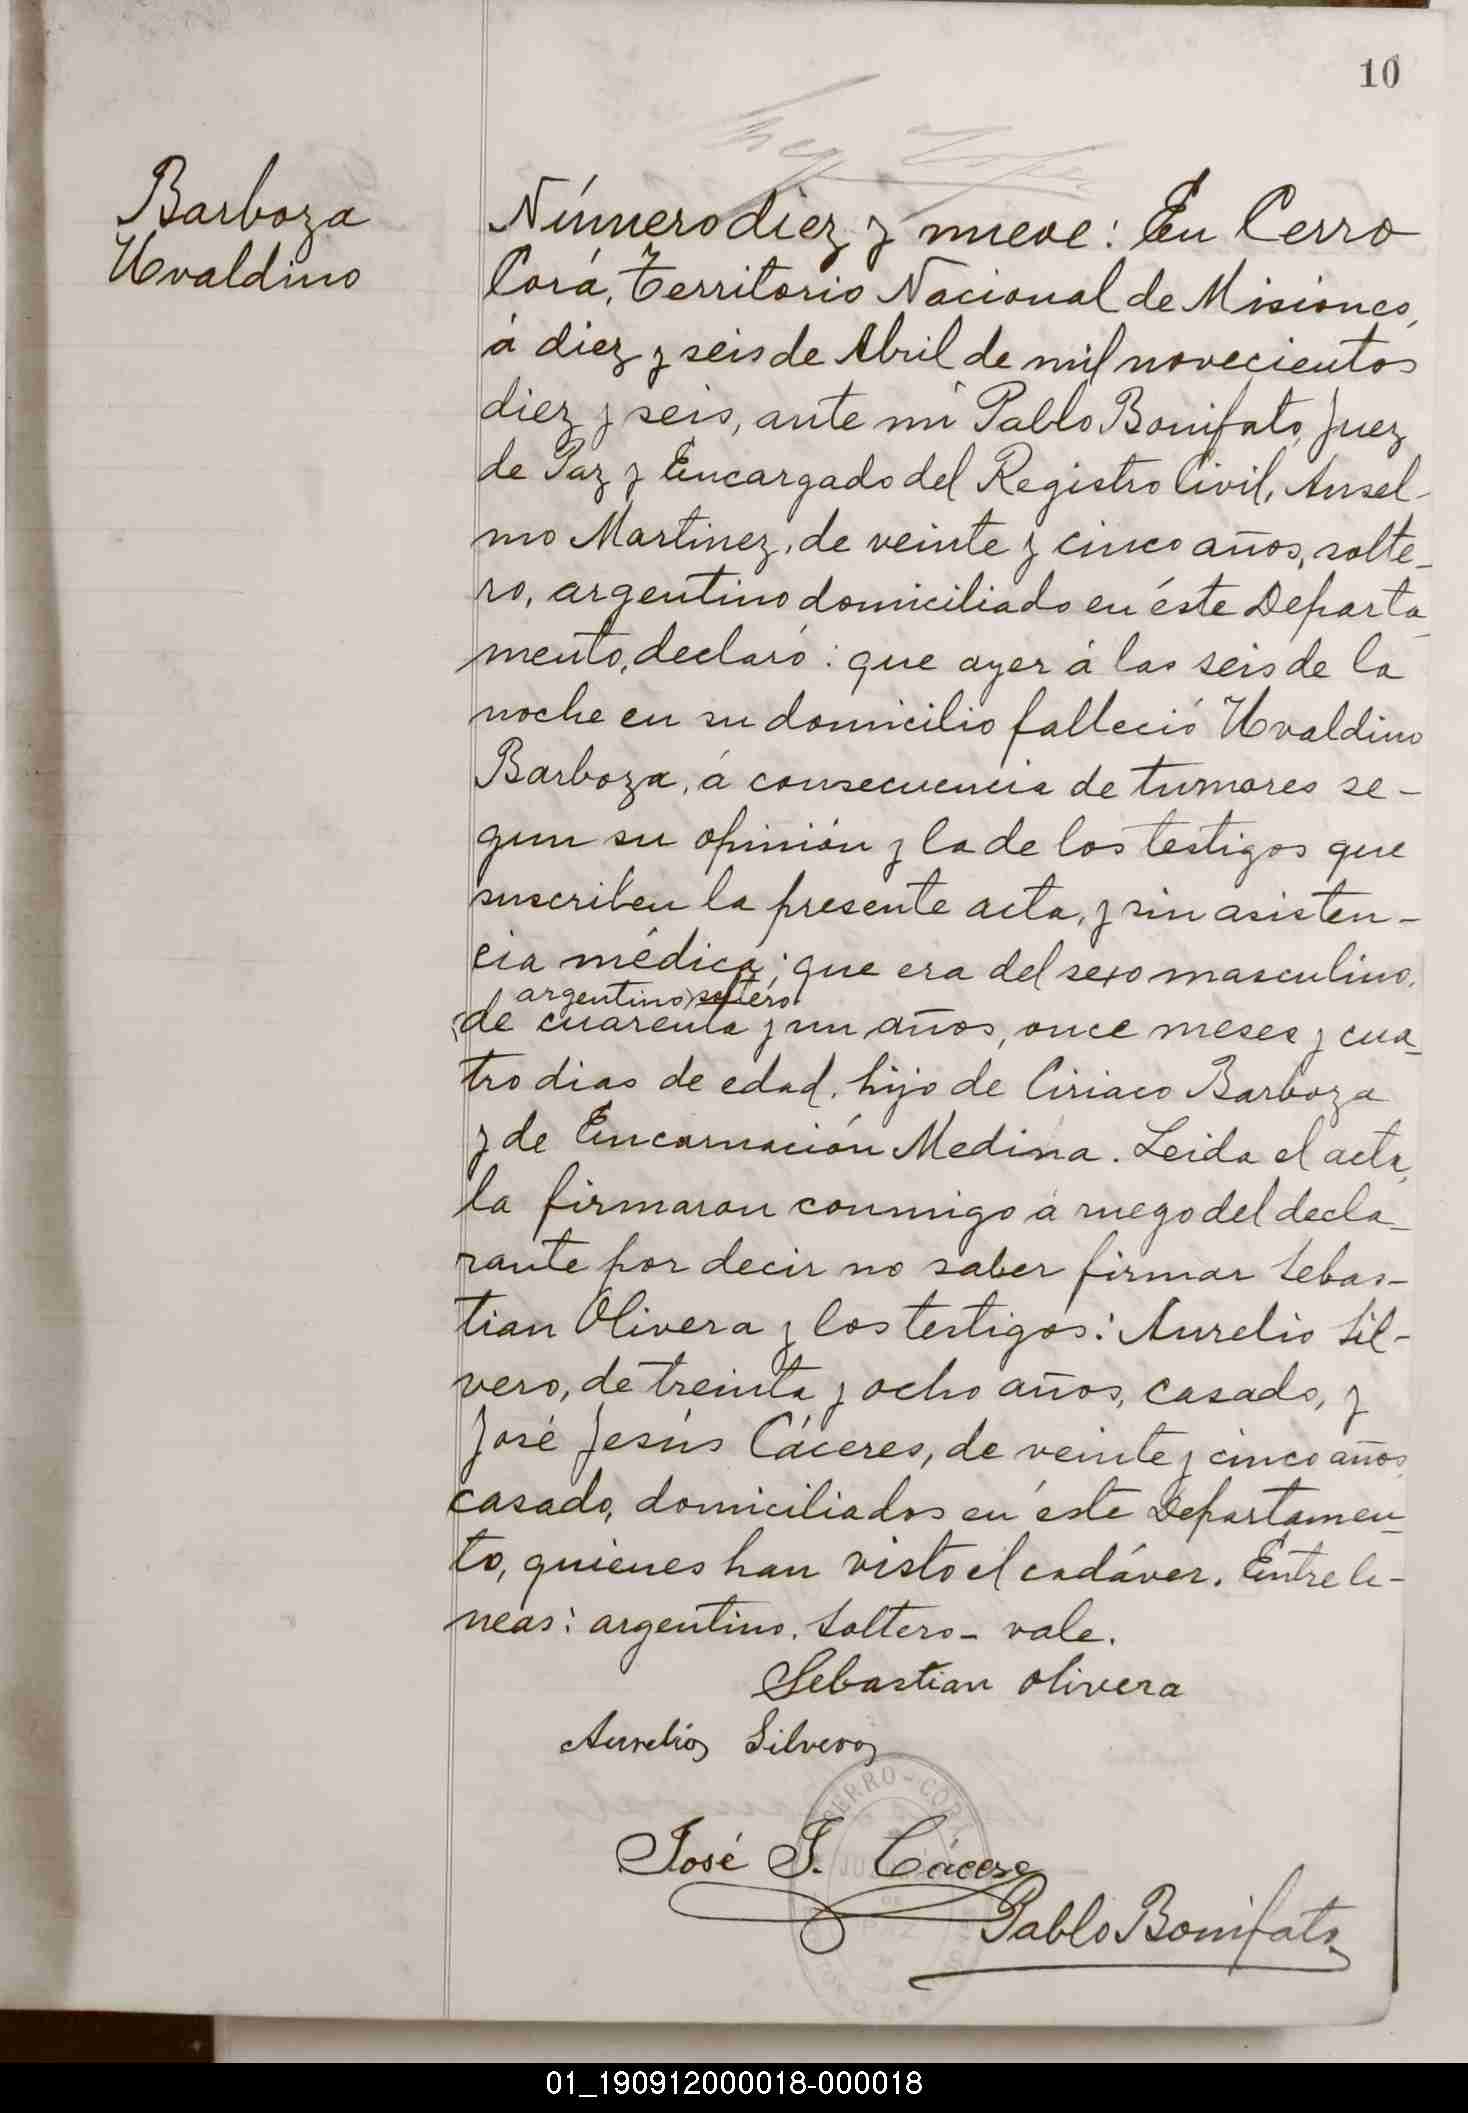 10
Barboza
Uvaldino
Número diez y nueve: En Cerro
Corá, Territorio Nacional de Misiones,
á diez y seis de Abril de mil novecientos
diez y seis, ante mí Pablo Bonifato, Juez
de Paz y Encargado del Registro Civil, Ansel-
mo Martinez, de veinte y cinco años, solte-
ro, argentino domiciliado en éste Departa
mento, declaró: que ayer á las seis de la
noche en su domicilio falleció Uvaldino
Barboza, á consecuencia de tumores se-
gun su opinión y la de los testigos que
suscriben la presente acta, y sin asisten-
cia médica; que era del sexo masculino,
argentino, soltero
de cuarenta y un años, once meses y cua-
tro dias de edad, hijo de Ciriaco Barboza
y de Encarnación Medina. Leida el acta,
la firmaron conmigo á ruego del decla-
rante por decir no saber firmar Sebas-
tian Olivera y los testigos: Aurelio Sil-
vero, de treinta y ocho años, casado, y
José Jesús Cáceres, de veinte y cinco años
casado, domiciliados en éste Departamen-
to, quienes han visto el cadáver. Entre li-
neas: argentino. Soltero - vale.
Sebastian Olivera
Aurelio Silvero
CERRO-CORÁ
José J. Cáceres
Pablo Bonifato
01_190912000018-000018